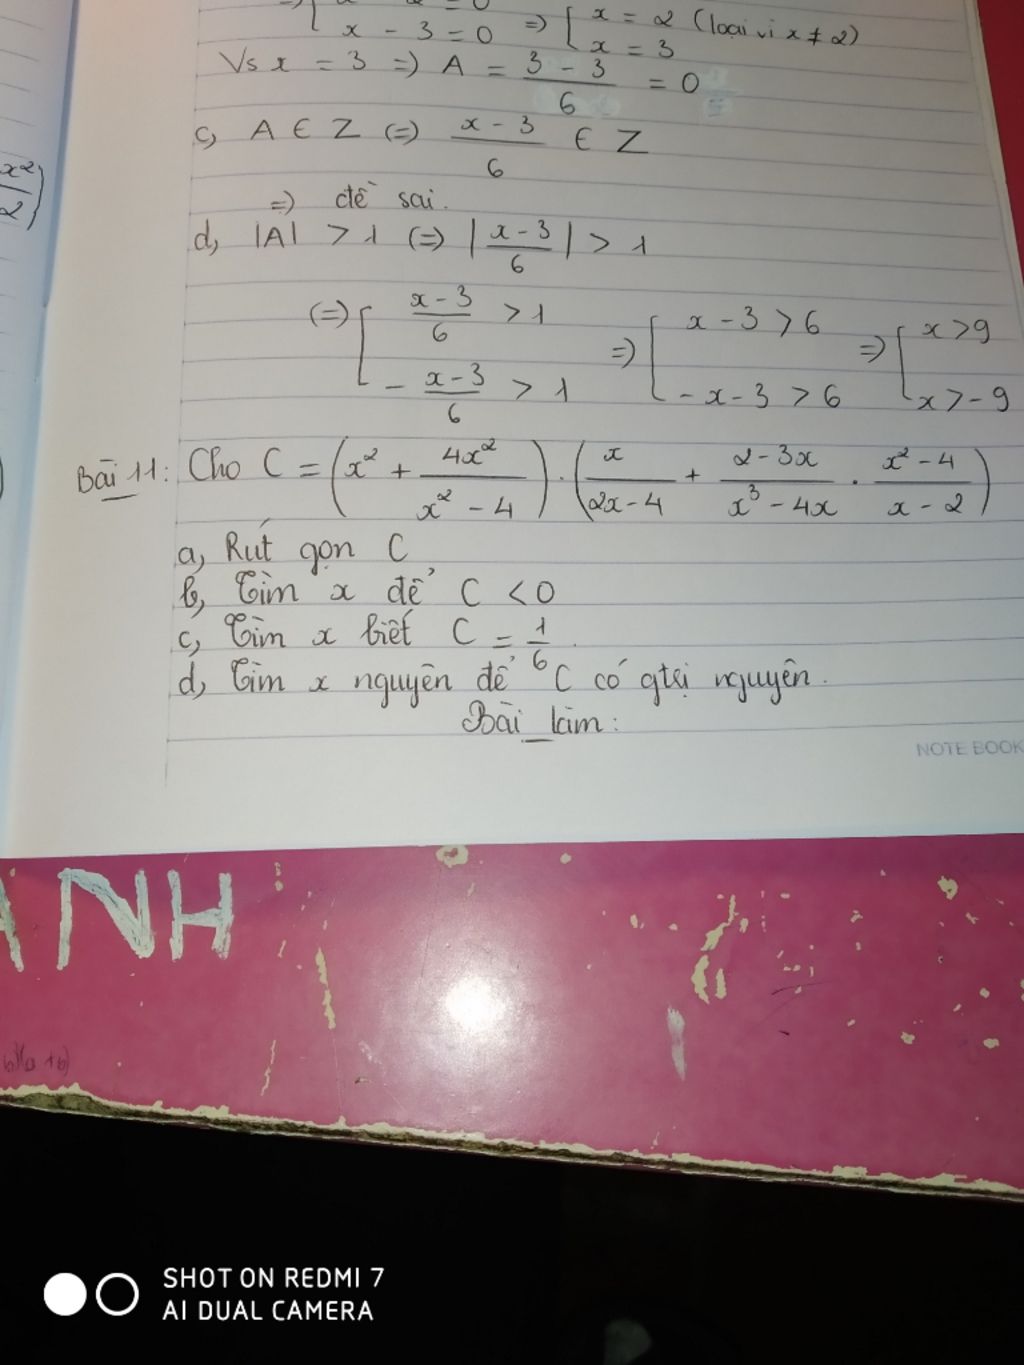 x - 3 = 0 => [ x = 2 (loại vì x ≠ 2)
x = 3
Vs x = 3 => A = (3 - 3)/6 = 0
c, A ∈ Z (=) (x - 3)/6 ∈ Z
=) đề sai.
d, |A| > 1 (=) |(x - 3)/6| > 1
(=) [ (x - 3)/6 > 1 =) [ x - 3 > 6 =) [ x > 9
- (x - 3)/6 > 1 - x - 3 > 6 x > - 9
Bài 11: Cho C = (x² + 4x²/(x² - 4)) . (x/(2x - 4) + (2 - 3x)/(x³ - 4x) . (x² - 4)/(x - 2))
a, Rút gọn C
b, Tìm x để C < 0
c, Tìm x biết C = 1/6.
d, Tìm x nguyên để C có gtrị nguyên.
Bài làm:
NOTE BOOK
ANH
SHOT ON REDMI 7
AI DUAL CAMERA